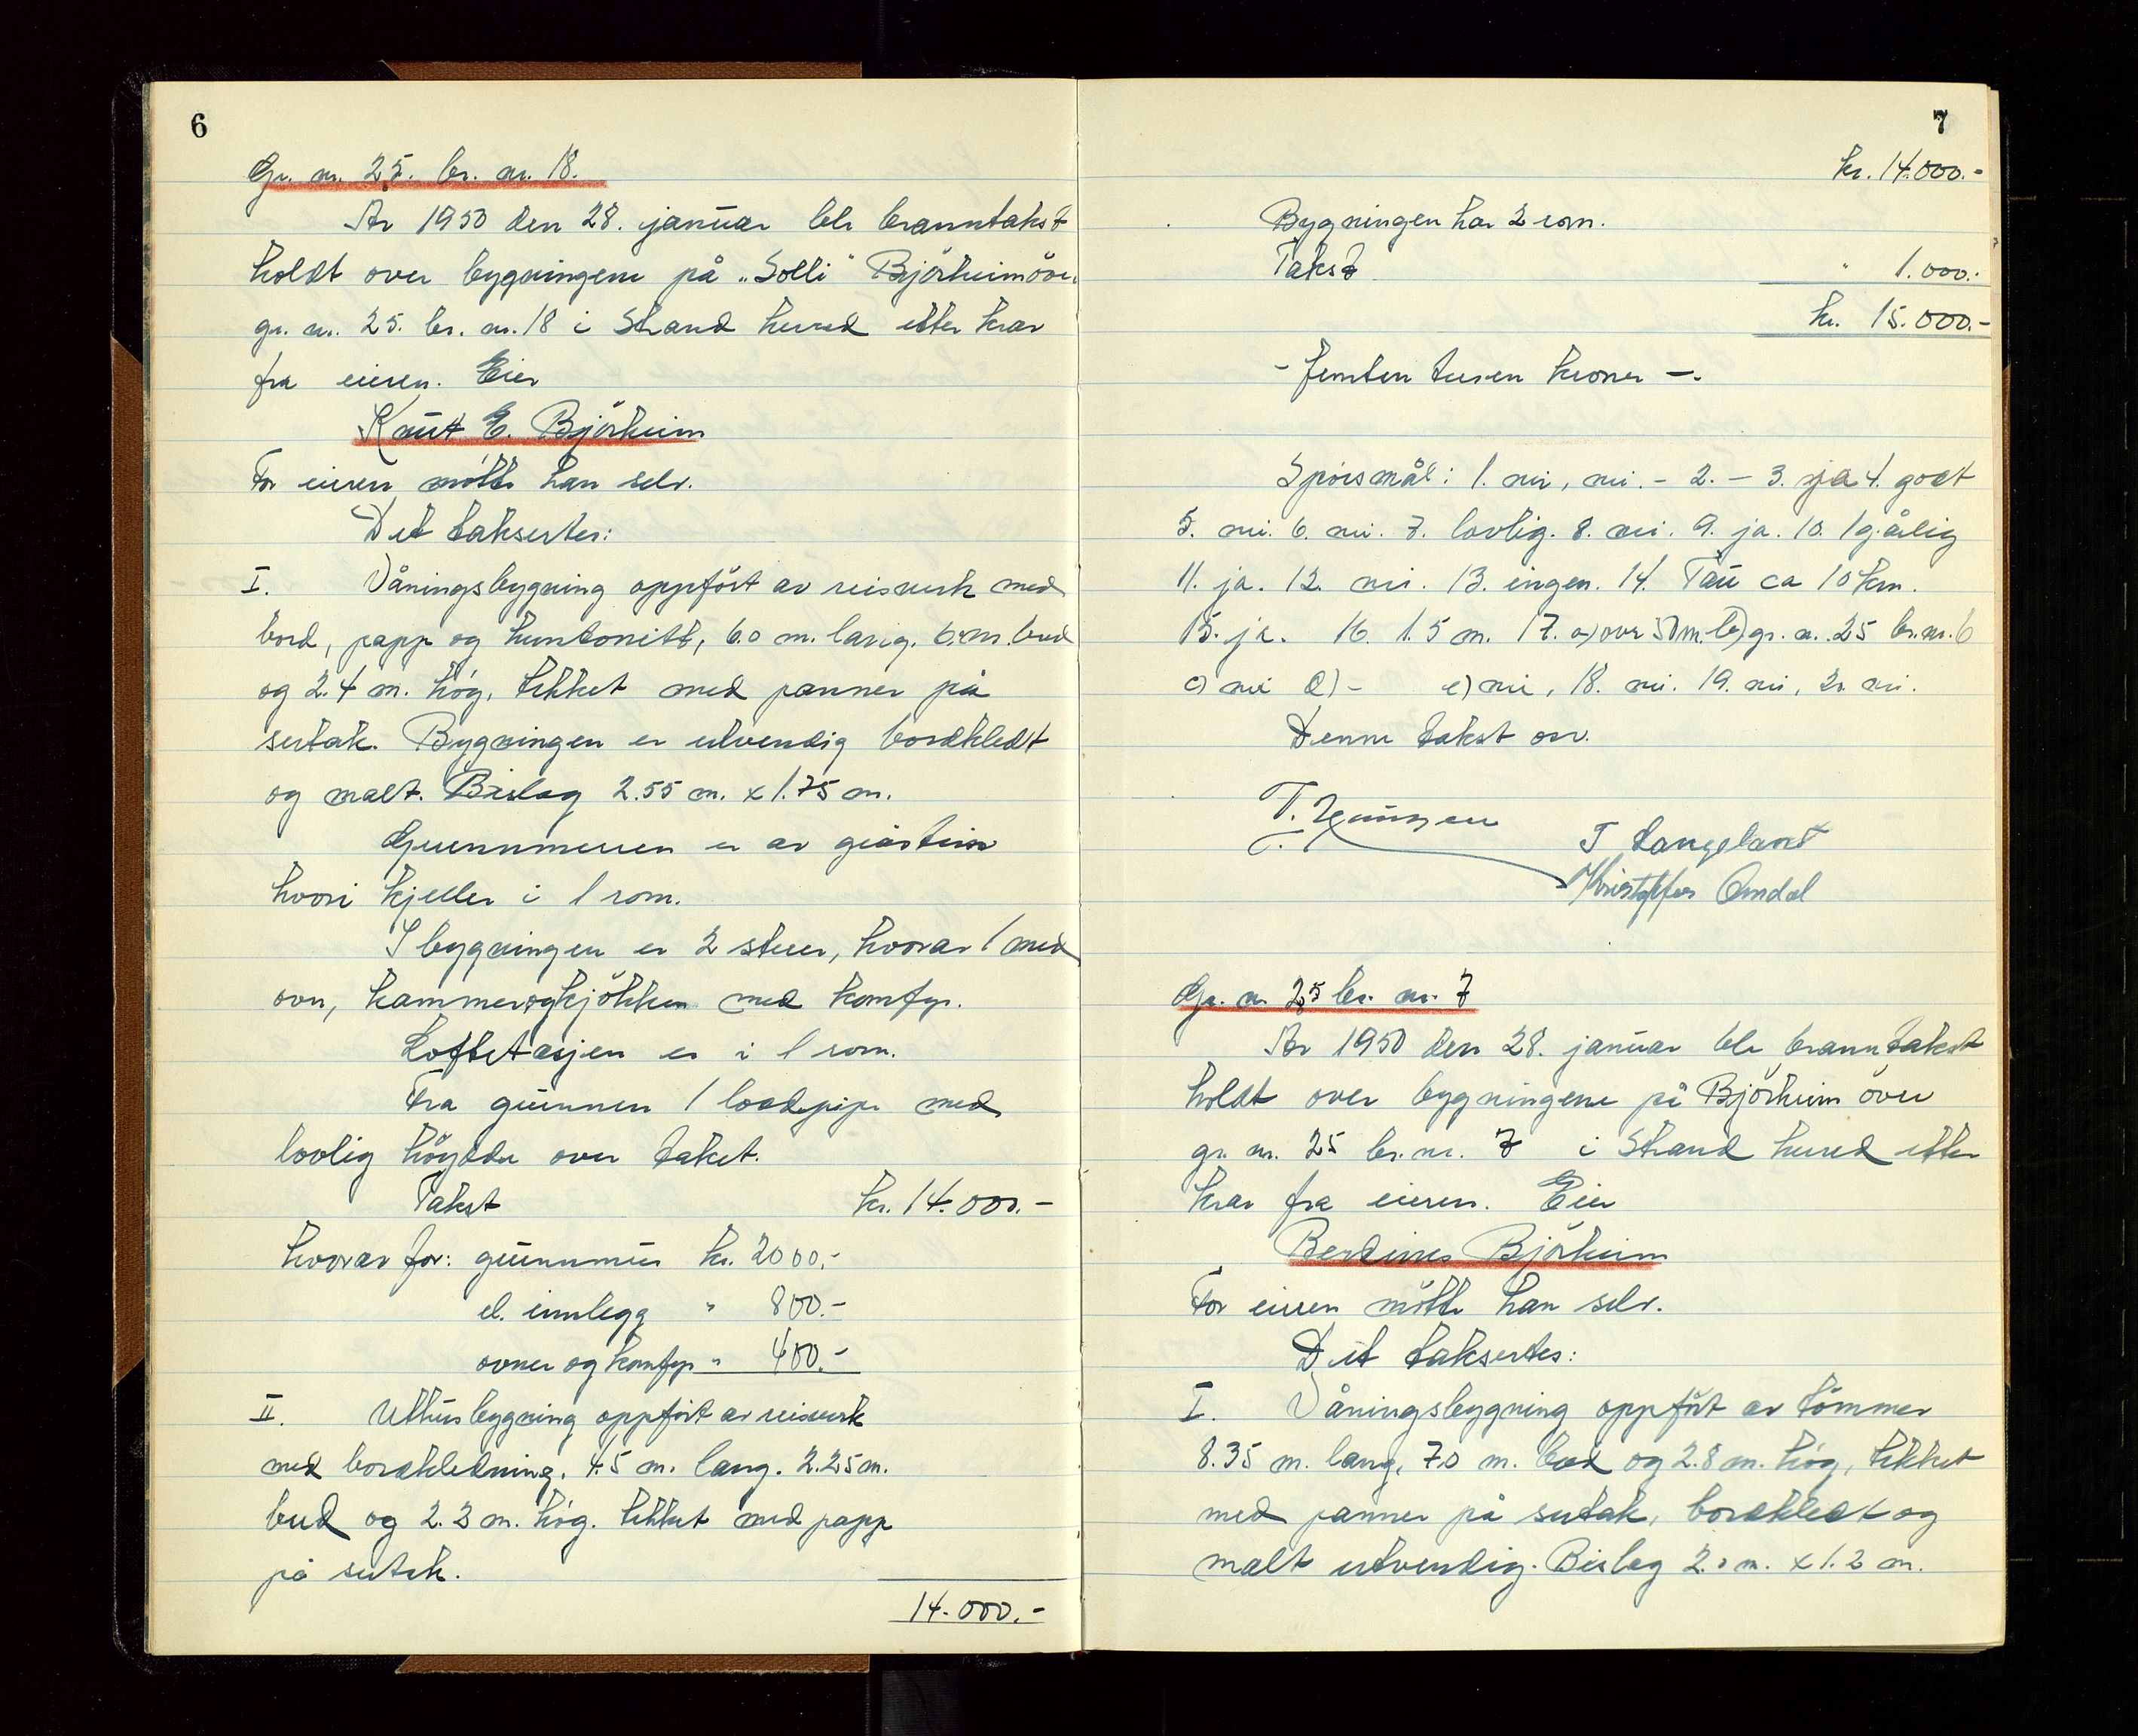 6
Gr. nr. 25. br. nr. 18.
År 1950 den 28. januar ble branntakst
holdt over bygningene på „Solli" Bjørheim øvre
gr. nr. 25. br. nr. 18 i Strand herred etter krav
fra eieren. Eier
Knut E. Björheim
For eieren møtte han selv.
Det taksertes:
I. Våningsbygning oppført av reisverk med
bord, papp og huntonitt, 6.0 m. lang. 6. m. bred
og 2.4 m. høg, tekket med panner på
sutak. Bygningen er utvendig bordkledt
og malt. Bislag 2.55 m. x 1.75 m.
Grunnmuren er av gråstein
hvori kjeller i 1 rom.
I bygningen er 2 stuer, hvorav 1 med
ovn, kammer og kjøkken med komfyr.
Loftetasjen er i 1 rom.
Fra grunnen 1 loddpipe med
lovlig høgdde over taket.
Takst kr. 14.000.-
hvorav for: grunnmur kr. 2000.-
el. innlegg " 800.-
ovner og komfyr " 400.-
II. Uthusbygning oppført av reisverk
med bordkledning. 4.5 m. lang. 2.25 m.
bred og 2.2 m. høg. tekket med papp
på sutak.
14.000.-
7
kr. 14.000.-
Bygningen har 2 rom.
Takst " 1.000.-
kr. 15.000.-
- femten tusen kroner -.
Spørsmål: 1. nei, nei. - 2. - 3. ja 4. godt
5. nei. 6. nei. 7. lovlig. 8. nei. 9. ja. 10. 1 g. årlig
11. ja. 12. nei. 13. ingen. 14. Tau ca 10 km.
15. ja. 16. 1.5 m. 17. a) over 50 m. b) gr. n. 25 br. nr. 6
c) nei d) - e) nei, 18. nei. 19. nei, 20. nei.
Denne takst osv.
T.
T Langeland
Kristoffer Omdal
Gr. n. 25 br. nr. 7
År 1950 den 28. januar ble branntakst
holdt over bygningene på Bjørheim øvre
gr. nr. 25 br. nr. 7 i Strand herred etter
krav fra eieren. Eier
Berdines Björheim
For eieren møtte han selv.
Det taksertes:
I. Våningsbygning oppført av tømmer
8.35 m. lang, 7.0 m. bred og 2.8 m. høg, tekket
med panner på sutak, bordkledt og
malt utvendig. Bislag 2.0 m. x 1.2 m.